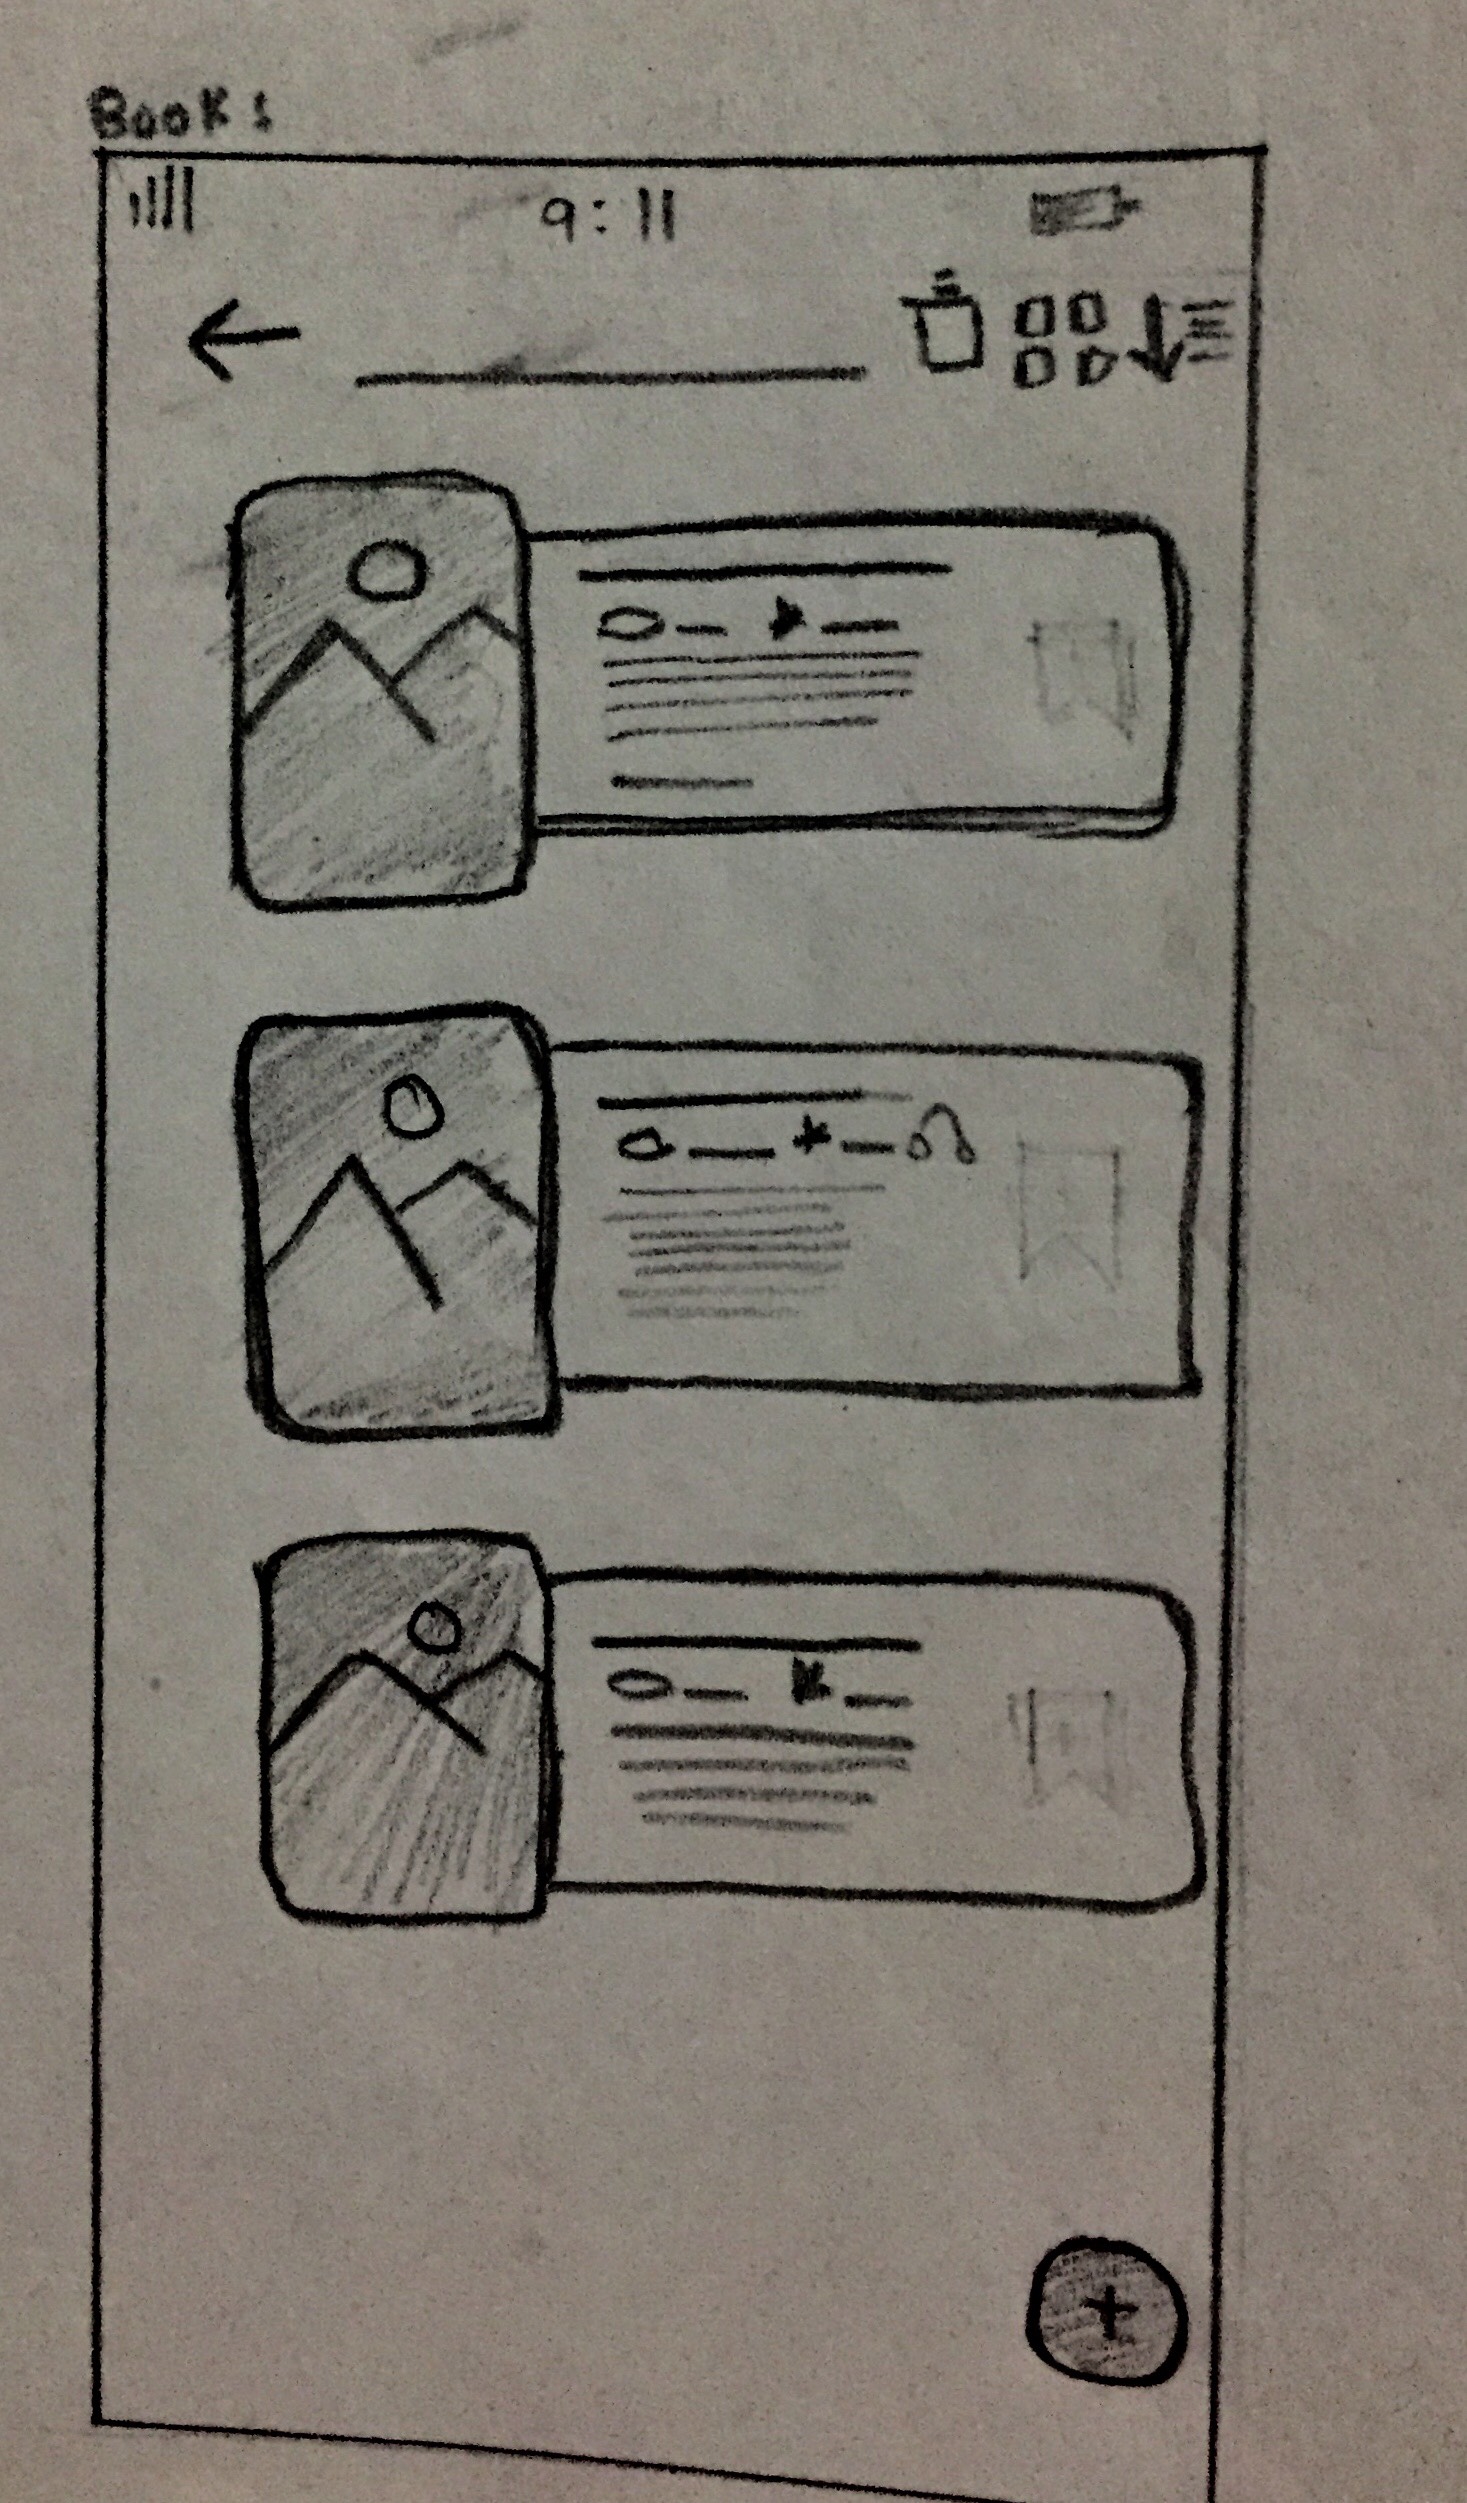 Books
9:11
+